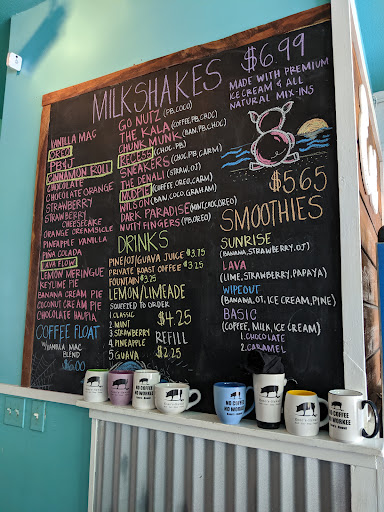 MILKSHAKES $6.99
MADE WITH PREMIUM
ICE CREAM & ALL
NATURAL MIX-INS
VANILLA MAC
OREO
PB&J
CINNAMON ROLL
CHOCOLATE
CHOCOLATE ORANGE
STRAWBERRY
STRAWBERRY
CHEESECAKE
ORANGE CREAMSICLE
PINEAPPLE VANILLA
PIÑA COLADA
LAVA FLOW
LEMON MERINGUE
KEYLIME PIE
BANANA CREAM PIE
COCONUT CREAM PIE
CHOCOLATE HAUPIA
COFFEE FLOAT
W/VANILLA MAC
BLEND
$6.00
GO NUTZ (PB,COCO)
THE KALA (COFFEE,PB,CHOC)
CHUNK MUNK (BAN,PB,CHOC)
REESES (CHOC,PB)
SNEAKERS (CHOC,PB,CARM)
THE DENALI (STRAW,OT)
MUDPIE (COFFEE OREO,CARM)
WILSON (BAN,COCO,GRAHAM)
DARK PARADISE (MINT,CHOC,OREO)
NUTTY FINGERS (PB,OREO)
DRINKS
PINE/OT/GUAVA JUICE $3.75
PRIVATE ROAST COFFEE $3.25
FOUNTAIN $3.25
LEMON/LIMEADE
SQUEEZED TO ORDER
1. CLASSIC
2. MINT
3. STRAWBERRY
4. PINEAPPLE
5. GUAVA
$4.25
REFILL
$2.25
$5.65
SMOOTHIES
SUNRISE
(BANANA, STRAWBERRY, OT)
LAVA
(LIME, STRAWBERRY, PAPAYA)
WIPEOUT
(BANANA, OT, ICE CREAM, PINE)
BASIC
(COFFEE, MILK, ICE CREAM)
1. CHOCOLATE
2. CARAMEL
NO COFFEE
NO WORKEE
NO COFFEE
NO WORKEE
NO COFFEE
NO WORKEE